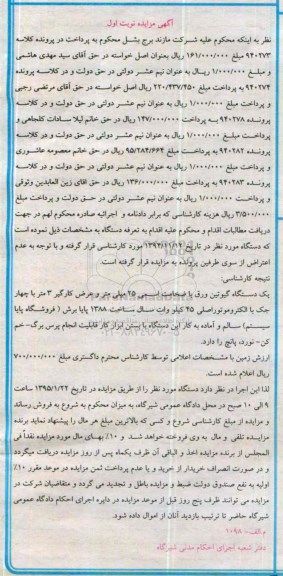 آگهی مزایده نوبت اول
نظر به اینکه محکوم علیه شرکت مازند برج بشل محکوم به پرداخت در پرونده کلاسه
۹۴۰۲۷۳ مبلغ ۱۶۱/۰۰۰/۰۰۰ ریال بعنوان اصل خواسته در حق آقای سید مهدی هاشمی
و مبلغ ۱/۰۰۰/۰۰۰ ریال به عنوان نیم عشر دولتی در حق دولت و در کلاسه پرونده
۹۴۰۲۷۴ به پرداخت مبلغ ۲۲۰/۴۳۷/۴۵۰ ریال اصل خواسته در حق آقای مرتضی رجبی
و پرداخت مبلغ ۱/۰۰۰/۰۰۰ به عنوان نیم عشر دولتی در حق دولت و در کلاسه
پرونده ۹۴۰۲۷۸ به پرداخت ۱۴۷/۰۰۰/۰۰۰ ریال در حق خانم لیلا سادات کلجاهی و
پرداخت مبلغ ۱/۰۰۰/۰۰۰ به عنوان نیم عشر دولتی در حق دولت و در کلاسه
پرونده ۹۴۰۲۸۲ به پرداخت مبلغ ۹۵/۲۸۴/۶۶۴ ریال در حق خانم معصومه عاشوری
و پرداخت مبلغ ۱/۰۰۰/۰۰۰ به عنوان نیم عشر دولتی در حق دولت و در کلاسه
پرونده ۹۴۰۲۸۳ به پرداخت مبلغ ۱۳۶/۰۰۰/۰۰۰ ریال در حق اقای زین العابدین وثوقی
و پرداخت ۱/۰۰۰/۰۰۰ ریال به عنوان نیم عشر دولتی در حق دولت و پرداخت مبلغ
۳/۵۰۰/۰۰۰ ریال هزینه کارشناسی که برابر دادنامه و اجرائیه صادره محکوم لهم در جهت
دریافت مطالبات اقدام و محکوم علیه اقدام به تعرفه دستگاه به مشخصات ذیل نموده است
که دستگاه مورد نظر در تاریخ ۱۳۹۴/۱۱/۱۴ مورد کارشناسی قرار گرفته و با توجه به عدم
اعتراض از سوی طرفین پرونده به مزایده قرار گرفته است.
نتیجه کارشناسی:
یک دستگاه گیوتین ورق با ضخامت اسمی ۲۵ میلی متر و عرض کارگیر ۳ متر با چهار
جک با الکتروموتوراصلی ۴۵ کیلو وات سال ساخت ۱۳۸۸ پایا برش (فروشگاه پایا
سیستم) سالم و آماده به کار این دستگاه با بستن ابزار کار قابلیت انجام پرس برک- خم
کن- نورد، پانچ را دارد.
ارزش زمین با مشخصات اعلامی توسط کارشناس محترم داگستری مبلغ ۷۰۰/۰۰۰/۰۰۰
ریال اعلام شده است.
لذا این اجرا در نظر دارد دستگاه مورد نظر را از طریق مزایده در تاریخ ۱۳۹۵/۱/۲۲ ساعت
۹ الی ۱۰ صبح در محل دادگاه عمومی شیرگاه، به میزان محکوم به شروع به فروش رساند
و مزایده از مبلغ کارشناسی شروع و کسی که بالاترین مبلغ هر مال را پیشنهاد نماید برنده
مزایده تلقی و مال به وی فروخته خواهد شد و ۱۰٪ بهای مال مورد مزایده نقداً فی
المجلس از برنده مزایده اخذ و الباقی آن ظرف یکماه پس از روز مزایده دریافت میگردد
و در صورت انصراف خریدار از خرید و یا عدم پرداخت ثمن مزایده در موعد مقرر ۱۰٪
اولیه به نفع صندوق دولت ضبط و مزایده باطل و تجدید می گردد و متقاضیان شرکت در
مزایده می توانند ظرف پنج روز قبل از موعد مزایده در دایره اجرای احکام دادگاه عمومی
شیرگاه حاضر تا ترتیب بازدید آنان از اموال داده شود.
م-الف- ۱۰۹۸
دفتر شعبه اجرای احکام مدنی شیرگاه